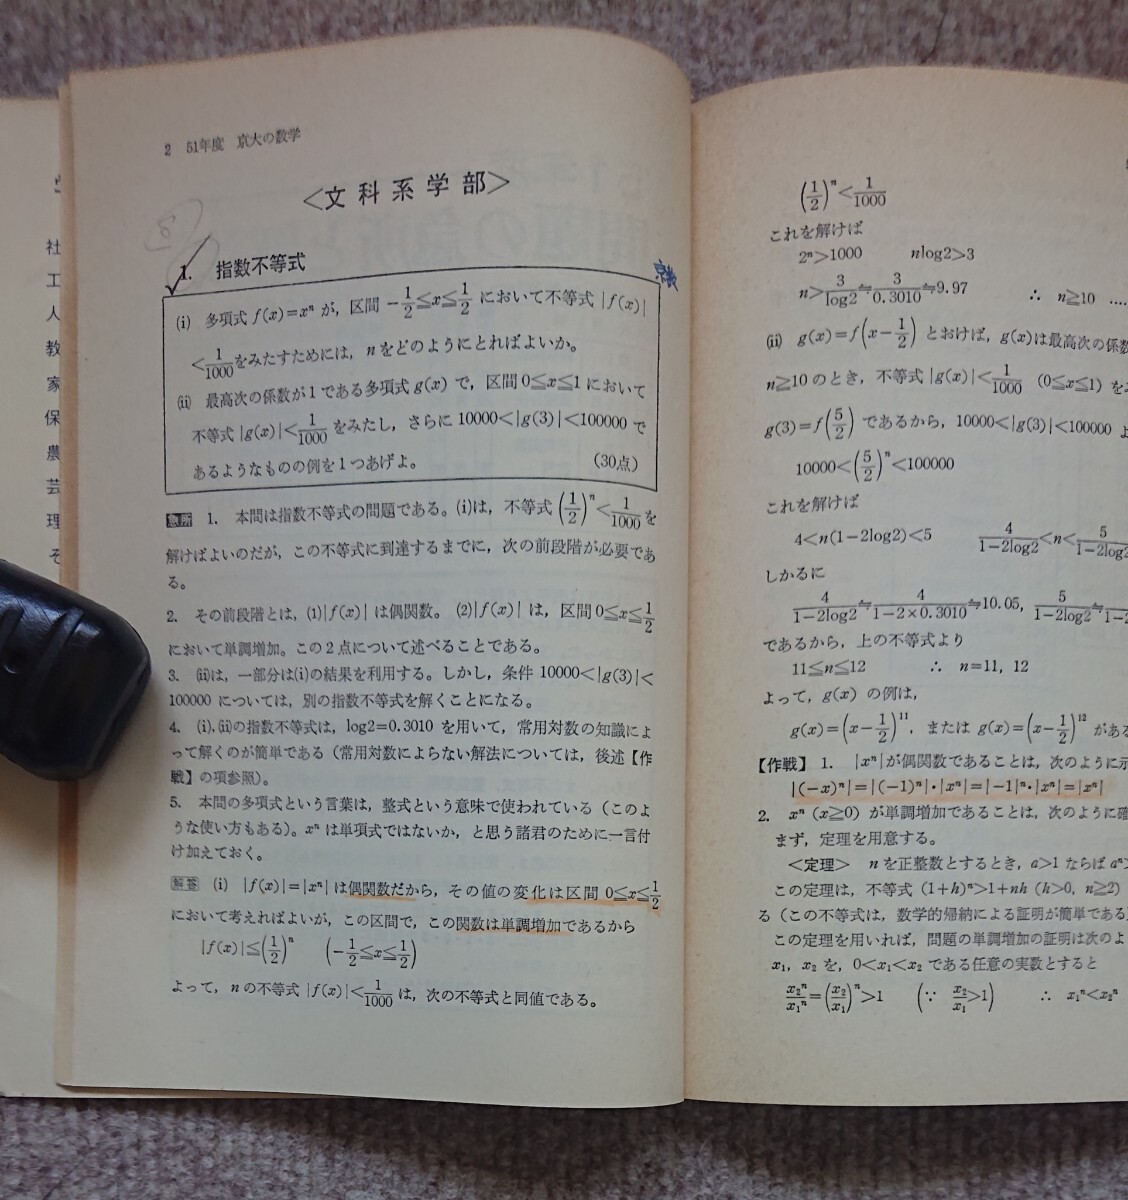 社
工
人
教
家
保
農
芸
理
そ
2 51年度 京大の数学
<文科系学部>
1. 指数不等式
(i) 多項式 f(x)=xⁿ が, 区間 -1/2≦x≦1/2 において不等式 |f(x)|
<1/1000をみたすためには, nをどのようにとればよいか。
(ii) 最高次の係数が1である多項式 g(x) で, 区間 0≦x≦1 において
不等式 |g(x)|<1/1000 をみたし, さらに 10000<|g(3)|<100000 で
あるようなものの例を1つあげよ。 (30点)
急所 1. 本問は指数不等式の問題である。(i)は, 不等式 (1/2)ⁿ<1/1000を
解けばよいのだが, この不等式に到達するまでに, 次の前段階が必要であ
る。
2. その前段階とは, (1)|f(x)| は偶関数。(2)|f(x)| は, 区間 0≦x≦1/2
において単調増加。この2点について述べることである。
3. (ii)は, 一部分は(i)の結果を利用する。しかし, 条件 10000<|g(3)|<
100000 については, 別の指数不等式を解くことになる。
4. (i),(ii)の指数不等式は, log2=0.3010 を用いて, 常用対数の知識によ
って解くのが簡単である (常用対数によらない解法については, 後述【作
戦】の項参照)。
5. 本問の多項式という言葉は, 整式という意味で使われている (このよ
うな使い方もある)。xⁿ は単項式ではないか, と思う諸君のために一言付
け加えておく。
解答 (i) |f(x)|=|xⁿ| は偶関数だから, その値の変化は区間 0≦x≦1/2
において考えればよいが, この区間で, この関数は単調増加であるから
|f(x)|≦(1/2)ⁿ (-1/2≦x≦1/2)
よって, n の不等式 |f(x)|<1/1000 は, 次の不等式と同値である。
(1/2)ⁿ<1/1000
これを解けば
2ⁿ>1000 nlog2>3
n>3/log2≒3/0.3010≒9.97 ∴ n≧10 ....
(ii) g(x)=f(x-1/2) とおけば, g(x)は最高次の係数
n≧10 のとき, 不等式 |g(x)|<1/1000 (0≦x≦1) を
g(3)=f(5/2) であるから, 10000<|g(3)|<100000 よ
10000<(5/2)ⁿ<100000
これを解けば
4<n(1-2log2)<5 4/1-2log2<n<5/1-2log
しかるに
4/1-2log2≒4/1-2×0.3010≒10.05, 5/1-2log2≒
であるから, 上の不等式より
11≦n≦12 ∴ n=11, 12
よって, g(x) の例は,
g(x)=(x-1/2)¹¹, または g(x)=(x-1/2)¹² がある
【作戦】 1. |xⁿ|が偶関数であることは, 次のように示
|(-x)ⁿ|=|(-1)ⁿ|・|xⁿ|=|-1|ⁿ・|xⁿ|=|xⁿ|
2. xⁿ (x≧0) が単調増加であることは, 次のように確
まず, 定理を用意する。
<定理> n を正整数とするとき, a>1 ならば aⁿ>
この定理は, 不等式 (1+h)ⁿ>1+nh (h>0, n≧2)
る (この不等式は, 数学的帰納による証明が簡単である)
この定理を用いれば, 問題の単調増加の証明は次のよ
x₁, x₂ を, 0<x₁<x₂ である任意の実数とすると
x₂ⁿ/x₁ⁿ=(x₂/x₁)ⁿ>1 (∵ x₂/x₁>1) ∴ x₁ⁿ<x₂ⁿ